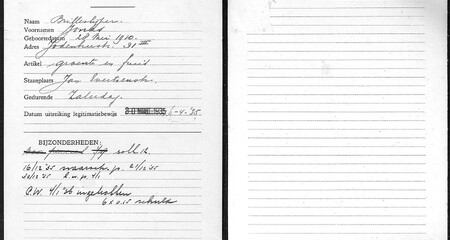 Naam Brilleslijper.
Voornamen Jonas
Geboortedatum 28 Mei 1910.
Adres Jodenbreestr. 31 III
Artikel groente en fruit
Staanplaats Jan Evertsenstr.
Gedurende Zaterdag.
Datum uitreiking legitimatiebewijs 30 MAART 1935 6-4-'35
BIJZONDERHEDEN:
16/12 '35 waarsch. p. 21/12 '35
4/1 '36 ingetrokken
6 x 0.15 schuld